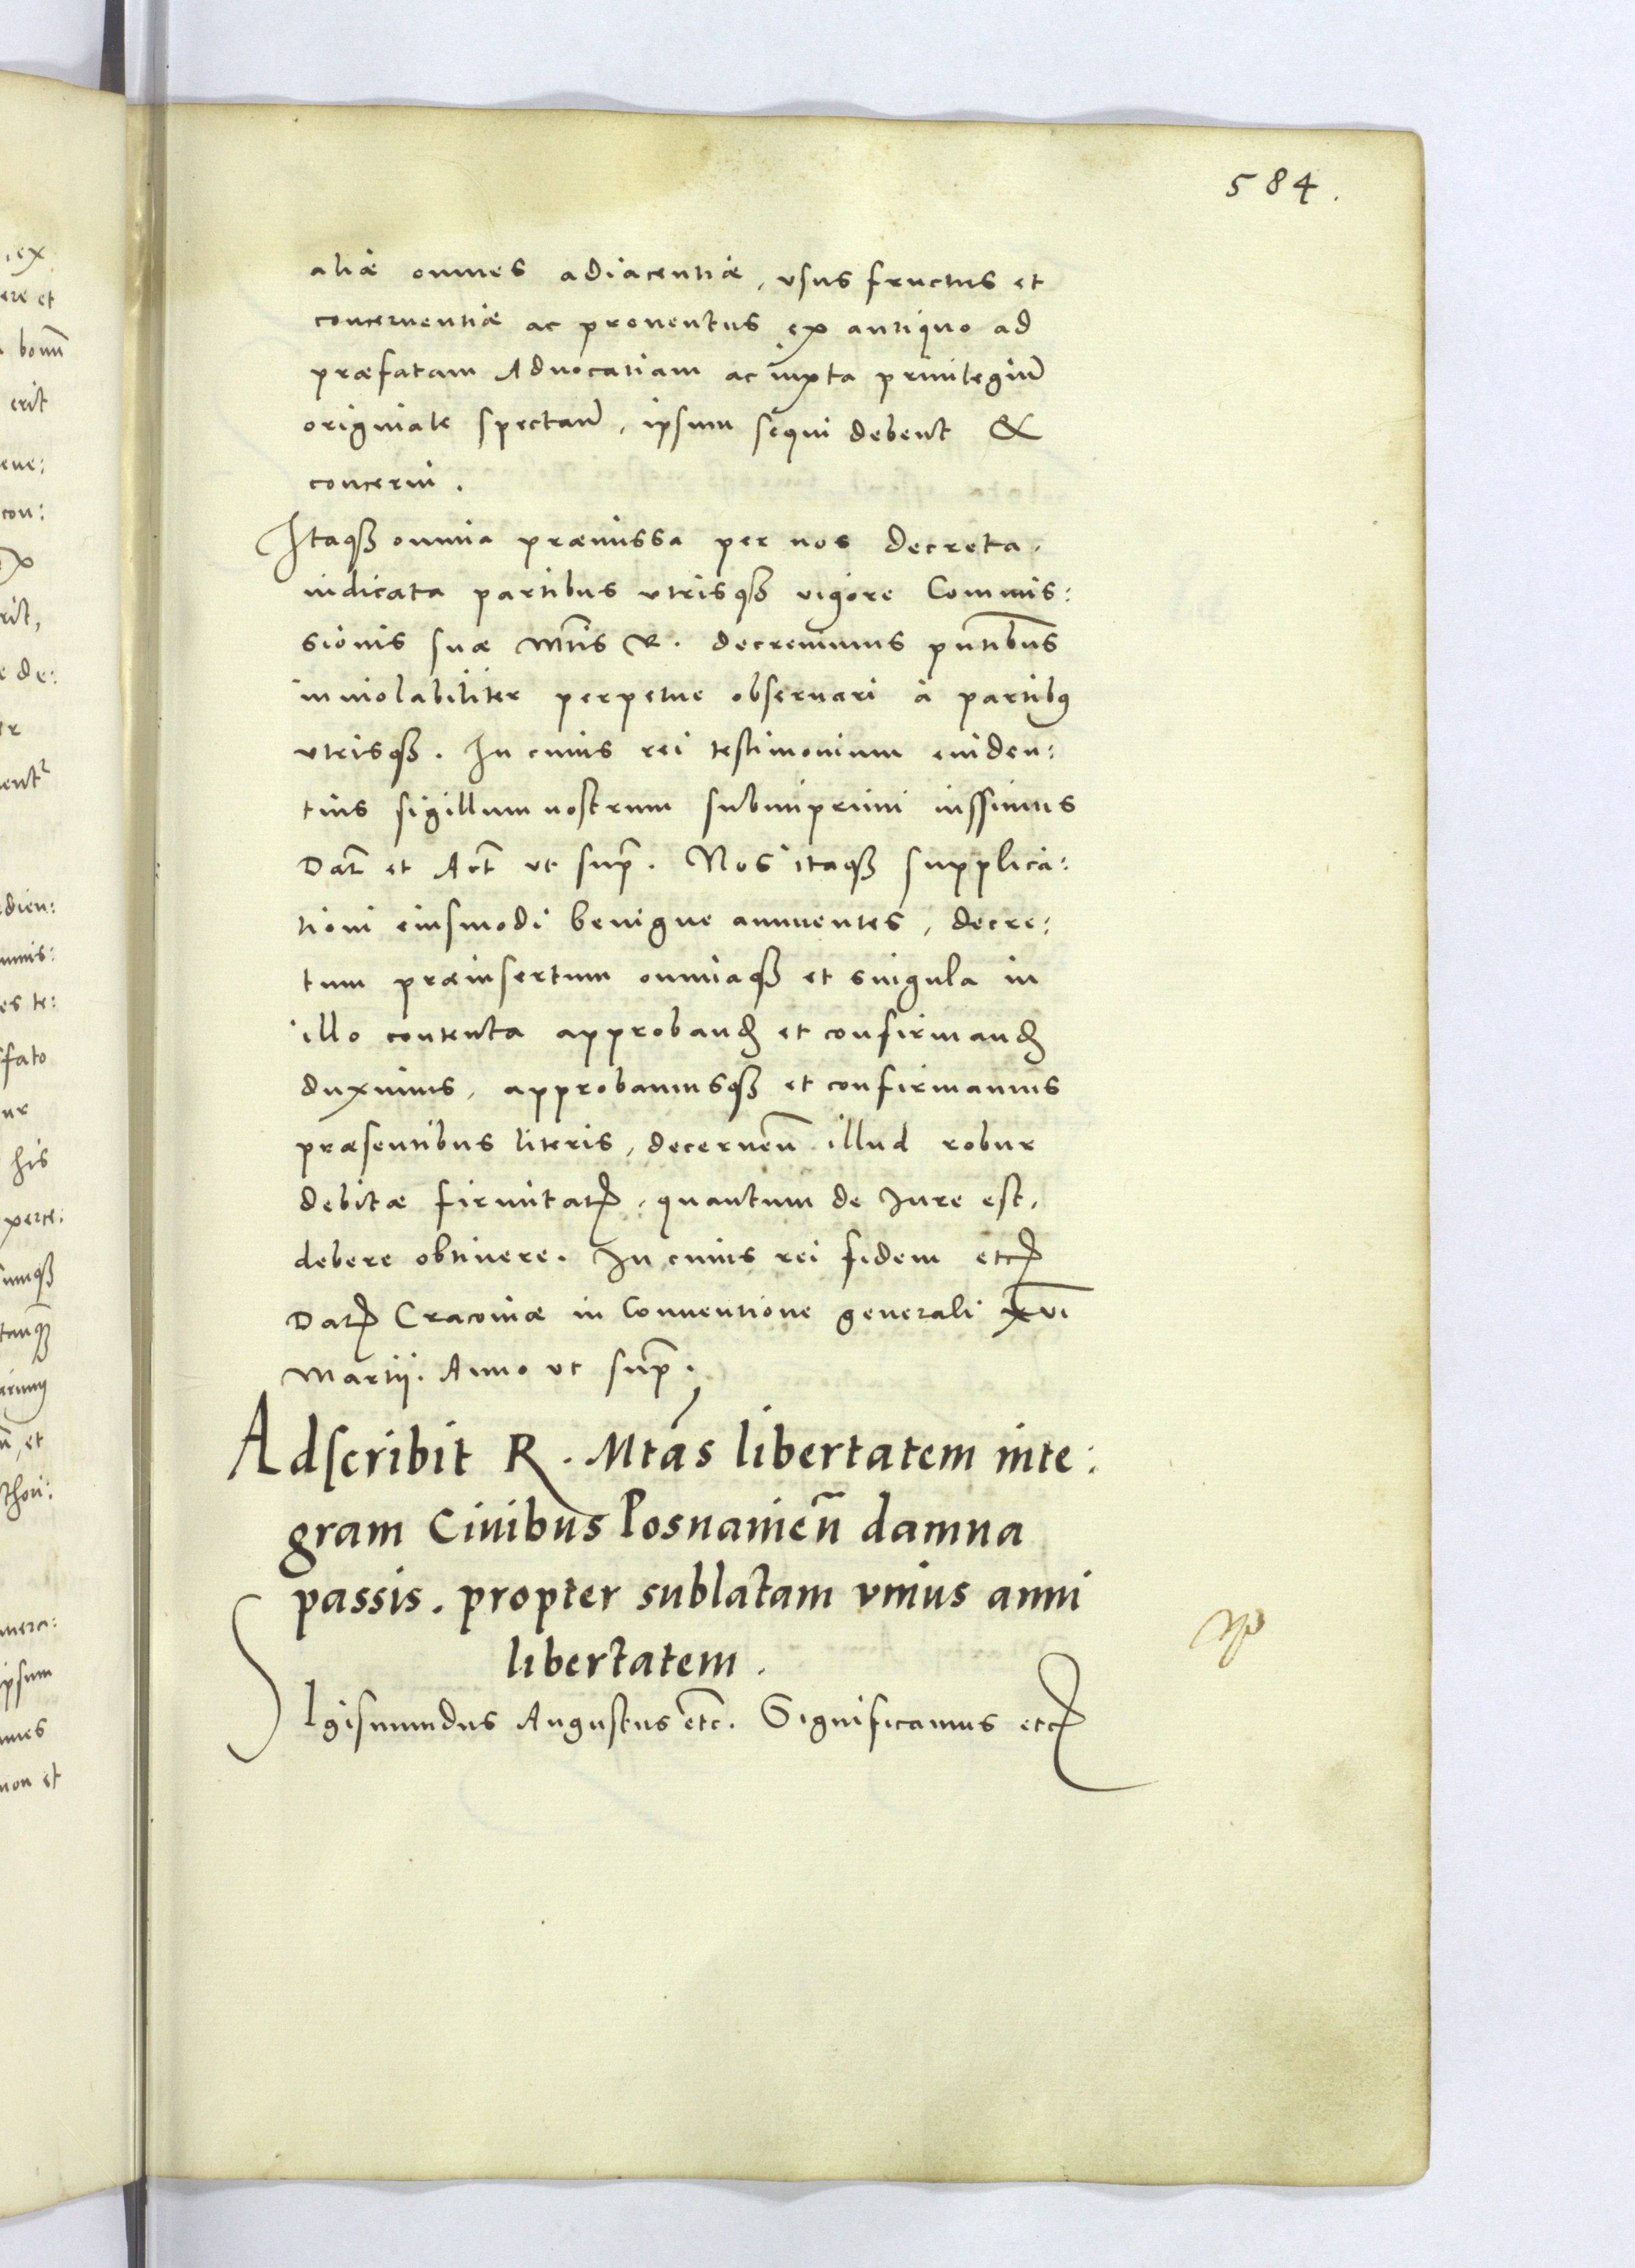 584.
aliæ omnes adiacentiæ, vsus fructus et
concernentiæ ac prouentus ex antiquo ad
præfatam Aduocatiam ac iuxta priuilegiũ
originale spectañ, ipsum sequi debent &
concerni.
Itaqꝫ omnia præmissa per nos decreta,
iudicata partibus vtrisqꝫ vigore Commis:
sionis suæ Mtis R. decreuimus pñtibus
inuiolabiliter perpetue obseruari à partibꝰ
vtrisqꝫ. In cuius rei testimonium euiden:
tius sigillum nostrum subimprimi iussimus
Dat̃ et Act̃ vt sup̃. Nos itaqꝫ supplica:
tioni eiusmodi benigne annuentes, decre:
tum præinsertum omniaqꝫ et singula in
illo contenta approbanđ et confirmanđ
duximus, approbamusqꝫ et confirmamus
præsentibus literis, decerneñ illud robur
debitæ firmitatꝭ, quantum de Iure est,
debere obtinere. In cuius rei fidem etcꝭ
Datꝭ Cracouiæ in Conuentione generali xvi
Martij. Anno vt sup̃.
Adscribit R. Mtas libertatem inte:
gram Ciuibus Posnanieñ damna
passis. propter sublatam vnius anni
libertatem.
SIgismundus Augustus etc̃. Significamus etcꝭ